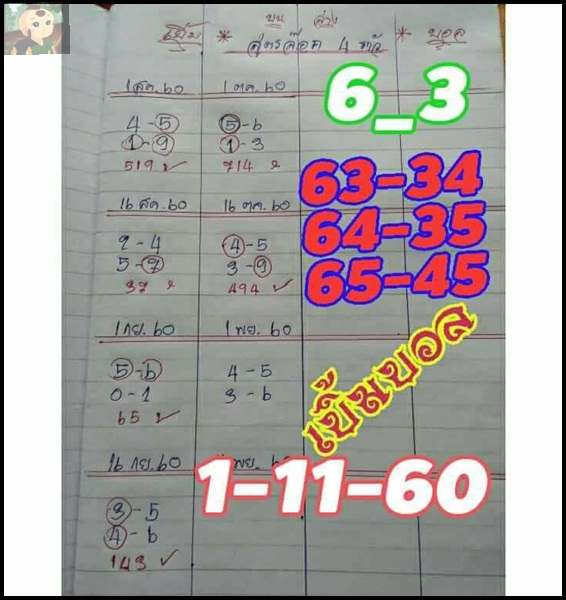 บน ล่าง
เขิ้ม * สูตรล๊อค 4 ตัว * บอล
1 สค. 60
4-5
1-9
519 ✓
1 ตค. 60
5-6
1-3
714
6_3
63-34
64-35
65-45
16 สค. 60
2-4
5-7
37
16 ตค. 60
4-5
3-9
494 ✓
1 กย. 60
5-6
0-1
65 ✓
1 พย. 60
4-5
3-6
เขิ้มบอล
16 กย. 60
3-5
4-6
143 ✓
พย. 60
1-11-60